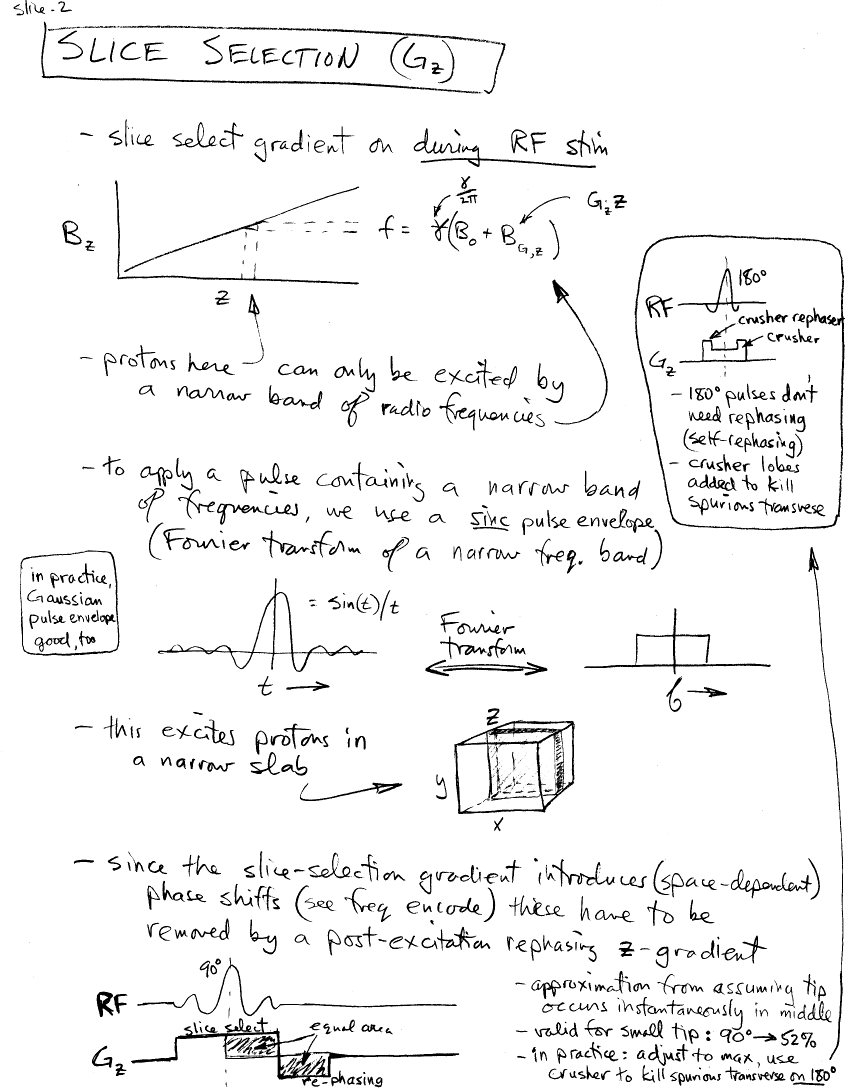 slice-2
SLICE SELECTION (Gz)
- slice select gradient on during RF stim
Bz
z
γ/2π
f = γ(B₀ + B_G,z)
Gz z
- protons here can only be excited by
a narrow band of radio frequencies
180°
RF
crusher rephaser
crusher
Gz
- 180° pulses don't
need rephasing
(self-rephasing)
- crusher lobes
added to kill
spurious transvese
- to apply a pulse containing a narrow band
of frequencies, we use a sinc pulse envelope
(Fourier transform of a narrow freq. band)
in practice,
Gaussian
pulse envelope
good, too
= sin(t)/t
t
Fourier
transform
f
- this excites protons in
a narrow slab
z
y
x
- since the slice-selection gradient introduces (space-dependent)
phase shifts (see freq encode) these have to be
removed by a post-excitation rephasing z-gradient
90°
RF
slice select
equal area
Gz
re-phasing
- approximation from assuming tip
occurs instantaneously in middle
- valid for small tip: 90° → 52%
- in practice: adjust to max, use
crusher to kill spurious transverse on 180°